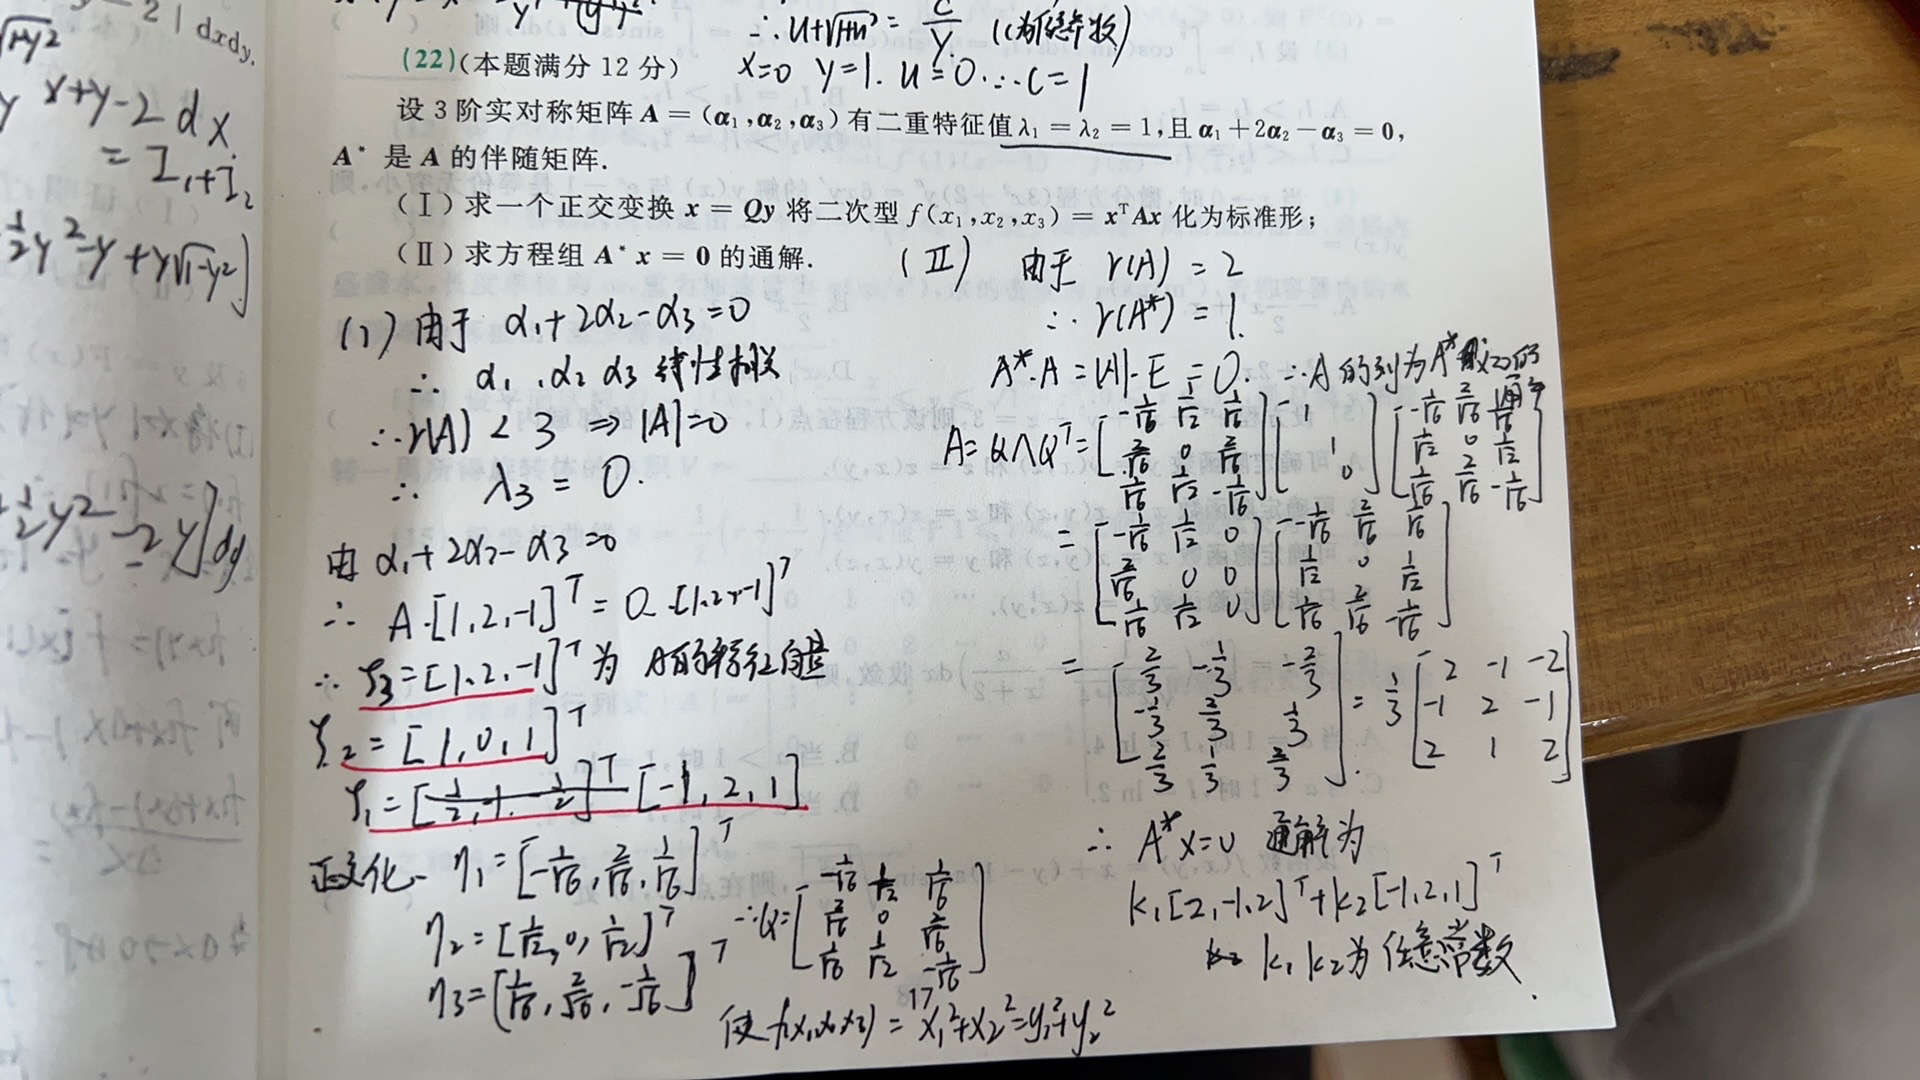 √1-y² - 2 ] dxdy.
x+y-2 dx
= I₁+I₂
½y²-y+y√1-y²]
½y²-2y]dy
∴ u+√1+u² = C/y. (C为任意常数)
(22)(本题满分 12 分) x=0 y=1. u=0. ∴ C=1
设 3 阶实对称矩阵 A = (α₁,α₂,α₃) 有二重特征值 λ₁ = λ₂ = 1,且 α₁ + 2α₂ − α₃ = 0,
A* 是 A 的伴随矩阵.
(Ⅰ) 求一个正交变换 x = Qy 将二次型 f(x₁,x₂,x₃) = xᵀAx 化为标准形;
(Ⅱ) 求方程组 A* x = 0 的通解.
(1) 由于 α₁+2α₂-α₃=0
∴ α₁、α₂ α₃ 线性相关
∴ r(A) < 3 ⇒ |A|=0
∴ λ₃ = 0.
由 α₁+2α₂-α₃=0
∴ A·[1,2,-1]ᵀ = 0·[1,2,-1]ᵀ
∴ ξ₃=[1,2,-1]ᵀ 为 A的特征向量
ξ₂ = [1,0,1]ᵀ
ξ₁ = [-1,2,1]
正交化 η₁ = [-1/√6, 2/√6, 1/√6]ᵀ
η₂ = [1/√2, 0, 1/√2]ᵀ
η₃ = [1/√6, 2/√6, -1/√6]ᵀ
∴ Q = [-1/√6 1/√2 1/√6
2/√6 0 2/√6
1/√6 1/√2 -1/√6]
使 f(x₁,x₂,x₃) = x₁²+x₂²=y₁²+y₂²
17
(Ⅱ) 由于 r(A) = 2
∴ r(A*) = 1.
A*·A = |A|·E = 0. ∴ A 的列为 A*x=0的通解
A = QΛQᵀ = [-1/√6 1/√2 1/√6] [1 ] [-1/√6 2/√6 1/√6]
[2/√6 0 2/√6] [ 1 ] [1/√2 0 1/√2]
[1/√6 1/√2 -1/√6] [ 0] [1/√6 2/√6 -1/√6]
= [-1/√6 1/√2 0] [-1/√6 2/√6 1/√6]
[2/√6 0 0] [1/√2 0 1/√2]
[1/√6 1/√2 0] [1/√6 2/√6 -1/√6]
= [2/3 -1/3 -2/3] = 1/3 [2 -1 -2]
[-1/3 2/3 1/3] [-1 2 -1]
[2/3 1/3 2/3] [2 1 2]
∴ A*x=0 通解为
k₁[2,-1,2]ᵀ+k₂[-1,2,1]ᵀ
k₁ k₂为任意常数.